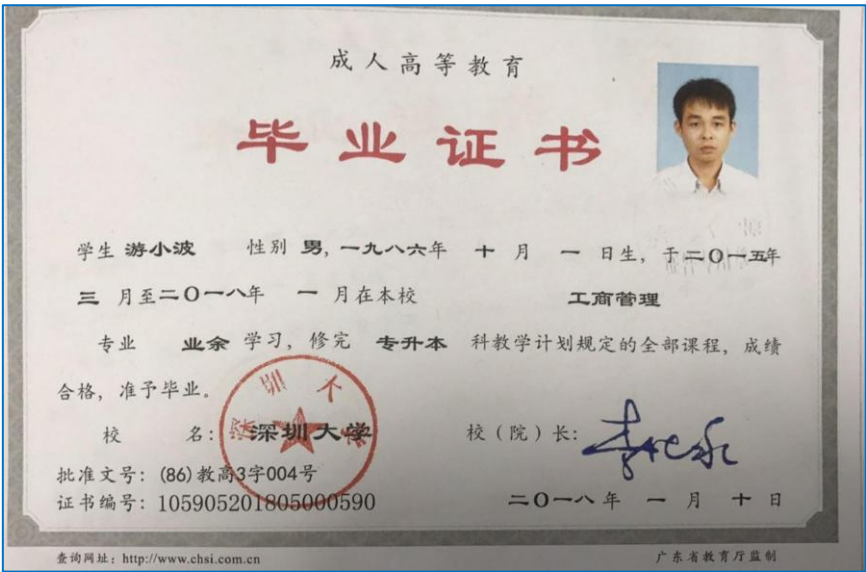 成人高等教育
毕业证书
学生 游小波 性别 男, 一九八六年 十 月 一 日生, 于二〇一五年
三 月至二〇一八年 一 月在本校 工商管理
专业 业余 学习, 修完 专升本 科教学计划规定的全部课程, 成绩
合格, 准予毕业。
深圳大学
校 名: 深圳大学 校(院)长:
批准文号: (86)教高3字004号
证书编号: 105905201805000590 二〇一八年 一 月 十 日
查询网址: http://www.chsi.com.cn 广东省教育厅监制